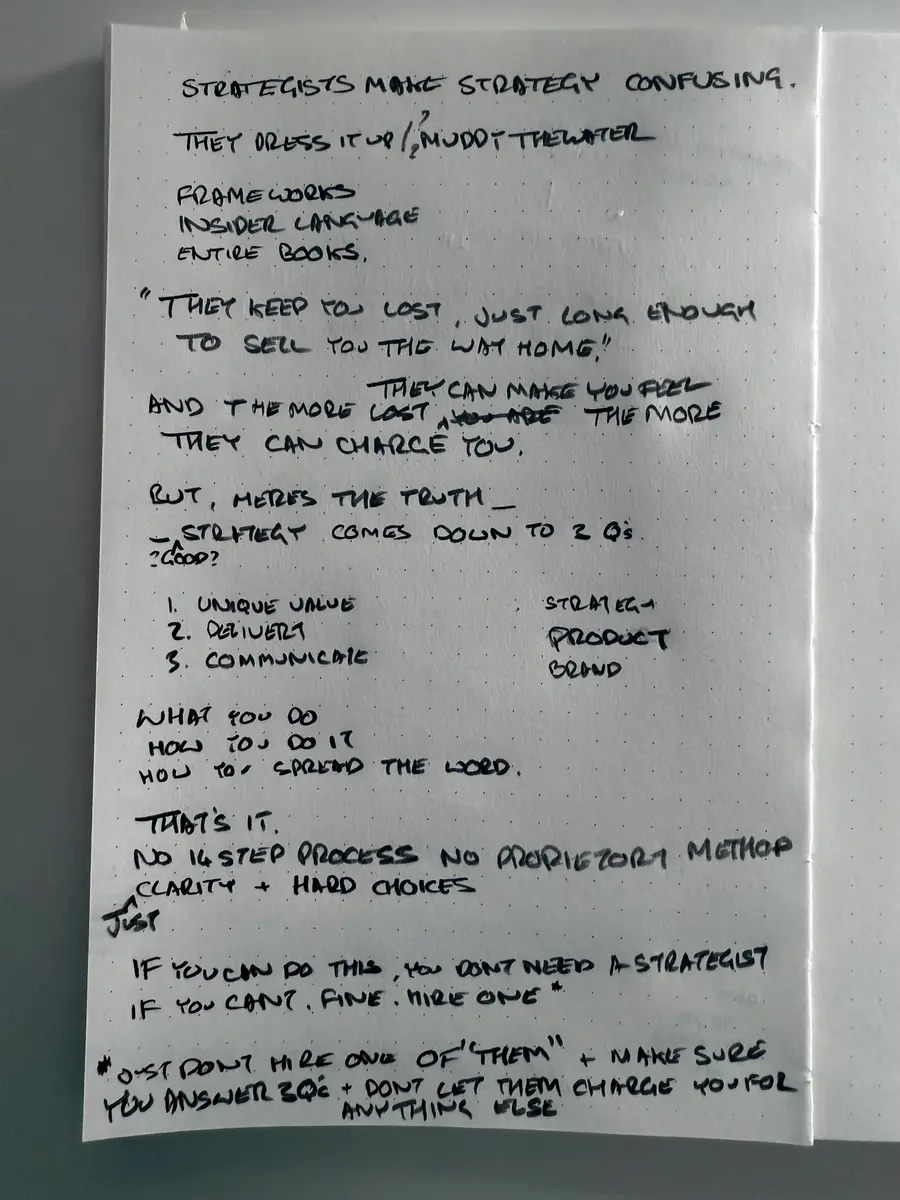 STRATEGISTS MAKE STRATEGY CONFUSING.
THEY DRESS IT UP /?? MUDDY THE WATER
FRAMEWORKS
INSIDER LANGUAGE
ENTIRE BOOKS.
"THEY KEEP YOU LOST, JUST LONG ENOUGH
TO SELL YOU THE WAY HOME."
THEY CAN MAKE YOU FEEL
AND THE MORE LOST YOU ARE THE MORE
THEY CAN CHARGE YOU.
BUT, HERES THE TRUTH _
_ STRATEGY COMES DOWN TO 3 Qs.
?GOOD?
1. UNIQUE VALUE STRATEGY
2. DELIVERY PRODUCT
3. COMMUNICATE BRAND
WHAT YOU DO
HOW YOU DO IT
HOW YOU SPREAD THE WORD.
THAT'S IT.
NO 14 STEP PROCESS NO PROPIETORY METHOD
CLARITY + HARD CHOICES
JUST
IF YOU CAN DO THIS, YOU DONT NEED A STRATEGIST
IF YOU CANT. FINE. HIRE ONE *
* JUST DONT HIRE ONE OF "THEM" + MAKE SURE
YOU ANSWER 3Qs + DONT LET THEM CHARGE YOU FOR
ANYTHING ELSE